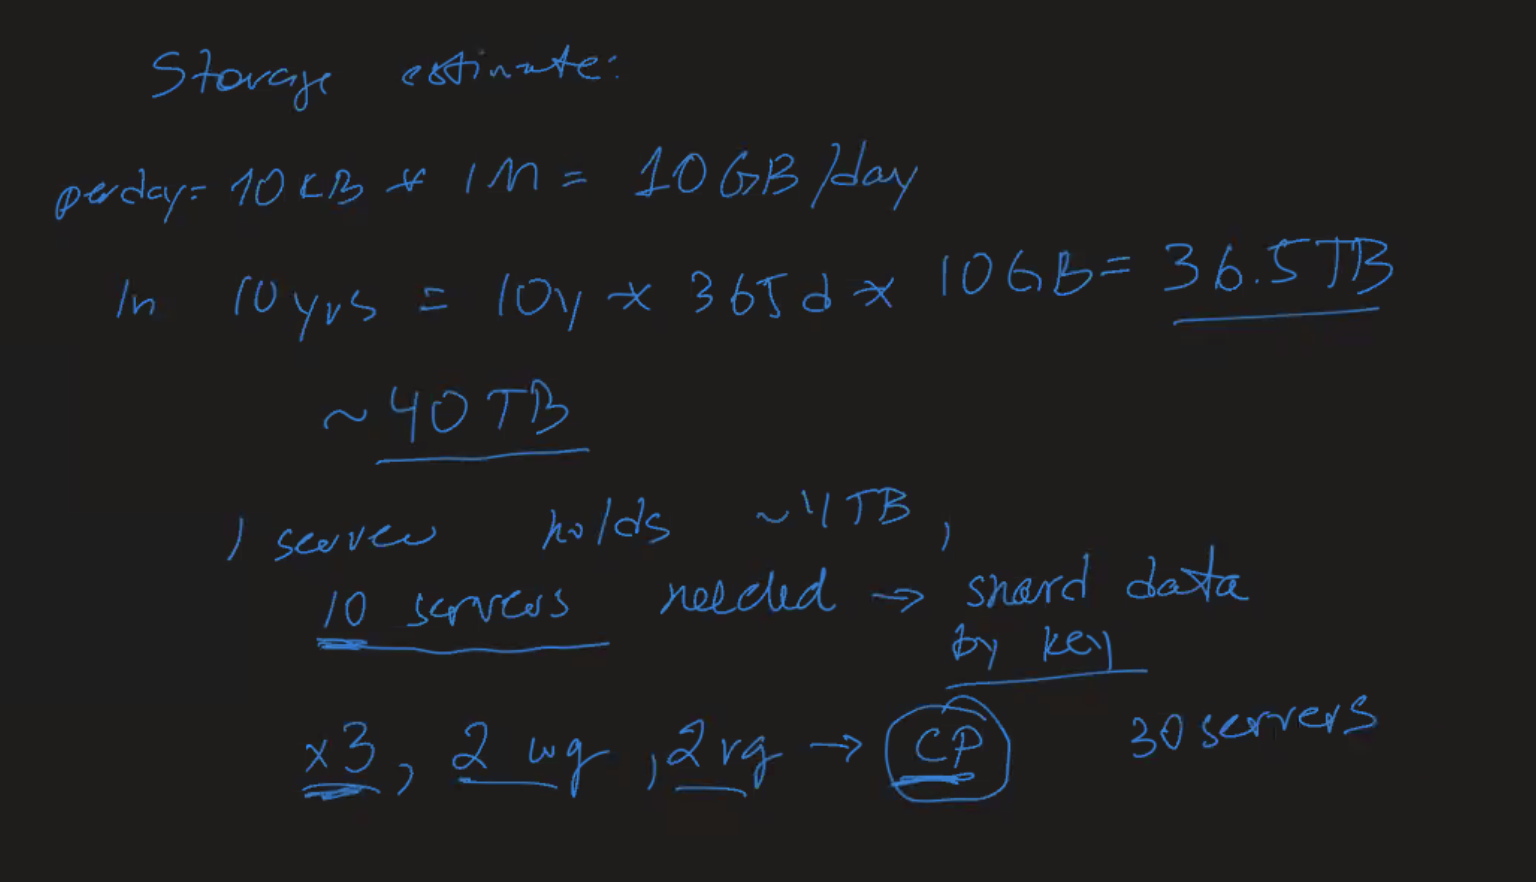 Storage estimate:
per day = 10 KB * 1M = 10 GB/day
In 10 yrs = 10y * 365d * 10GB = 36.5TB
~40TB
1 server holds ~4TB,
10 servers needed → shard data
by key
x3, 2 wq, 2 rq → CP 30 servers